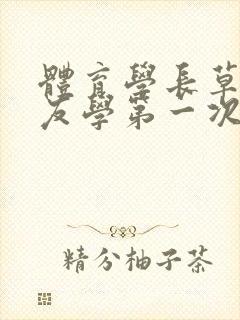 體育學長草
友學第一次
精分柚子茶